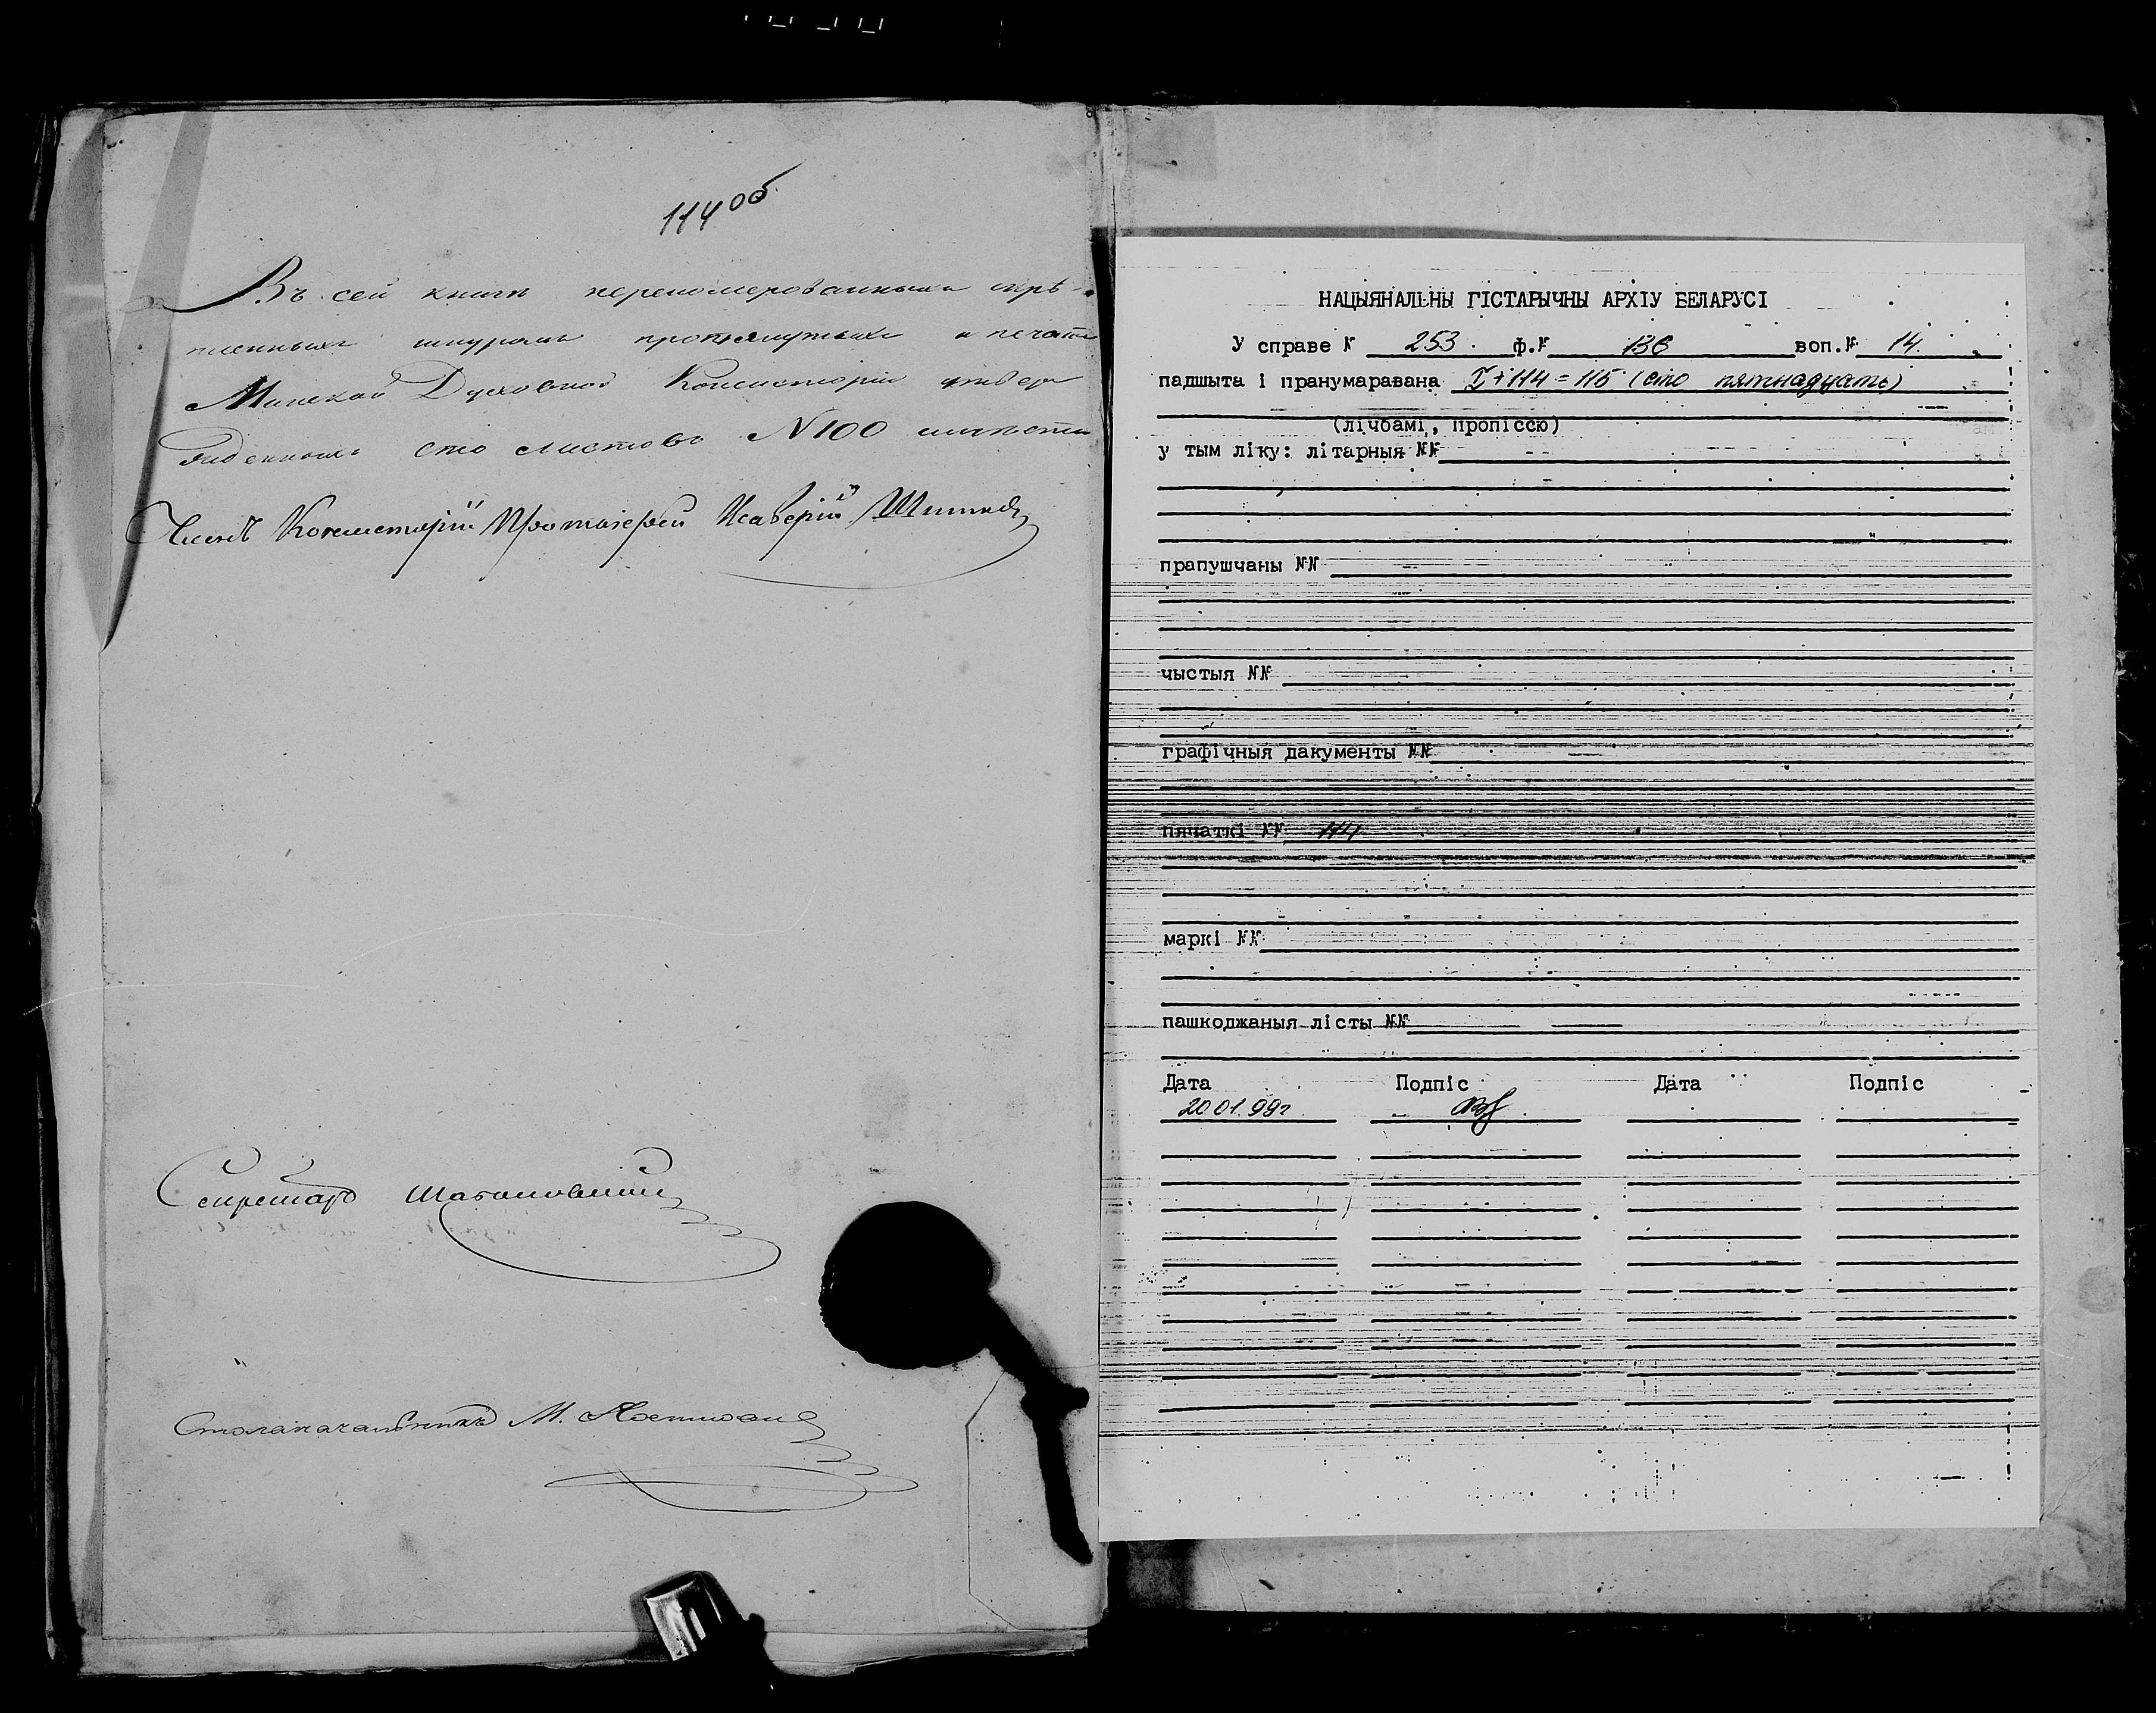 114 об
Въ сей книгѣ перенумерованныхъ скрѣ-
пленныхъ шнуромъ протянутыхъ и печатью
Минской Духовной Консисторіи утвер
жденныхъ сто листовъ N 100
Членъ Консисторіи Протоіерей Ксаверій
Секретарь
Столоначальникъ М.
НАЦЫЯНАЛЬНЫ ГІСТАРЫЧНЫ АРХІУ БЕЛАРУСІ
У справе № 253. ф.№ 136 воп.№ 14.
падшыта і пранумаравана I+114=115 (сто пятнадцать)
(лічбамі, пропіссю)
у тым ліку: літарныя №№
прапушчаны №№
чыстыя №№
графічныя дакументы №№
пячаткі №№ 114
маркі №№
пашкоджаныя лісты №№
Дата Подпіс Дата Подпіс
20.01.99г